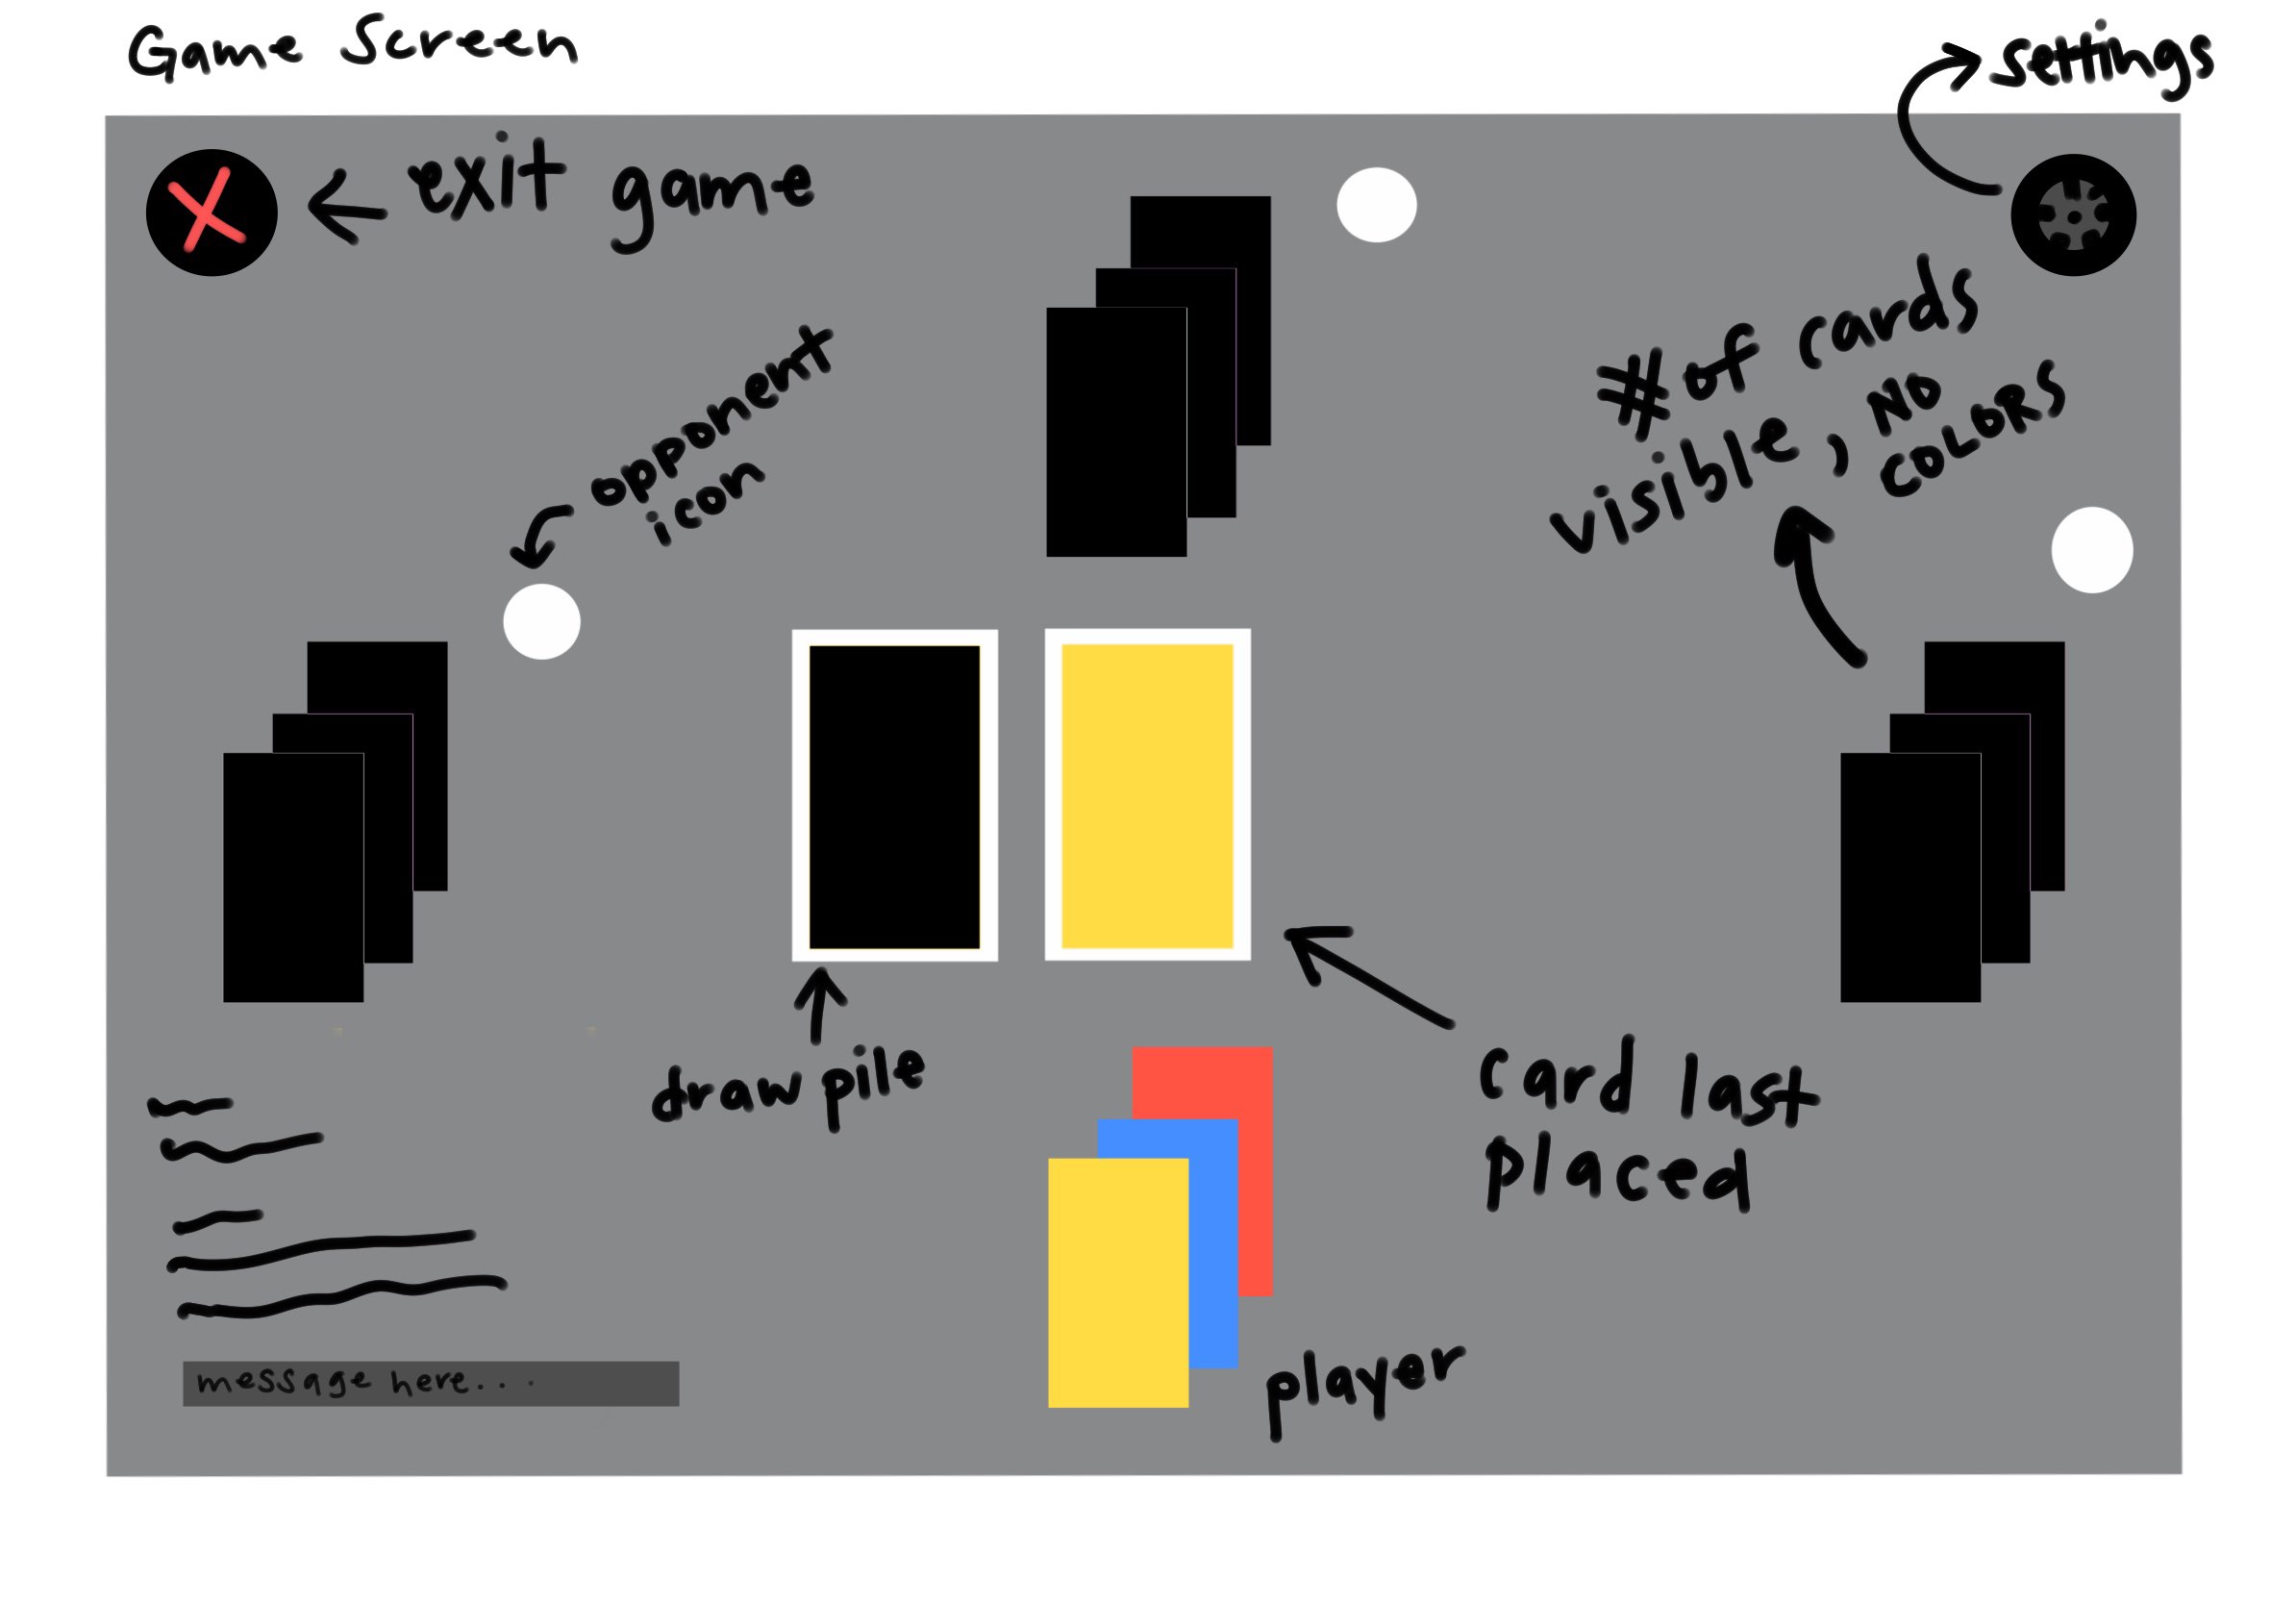 Game Screen
settings
exit game
opponent
icon
# of cards
visible, NO
COLORS
draw pile
card last
placed
message here...
player